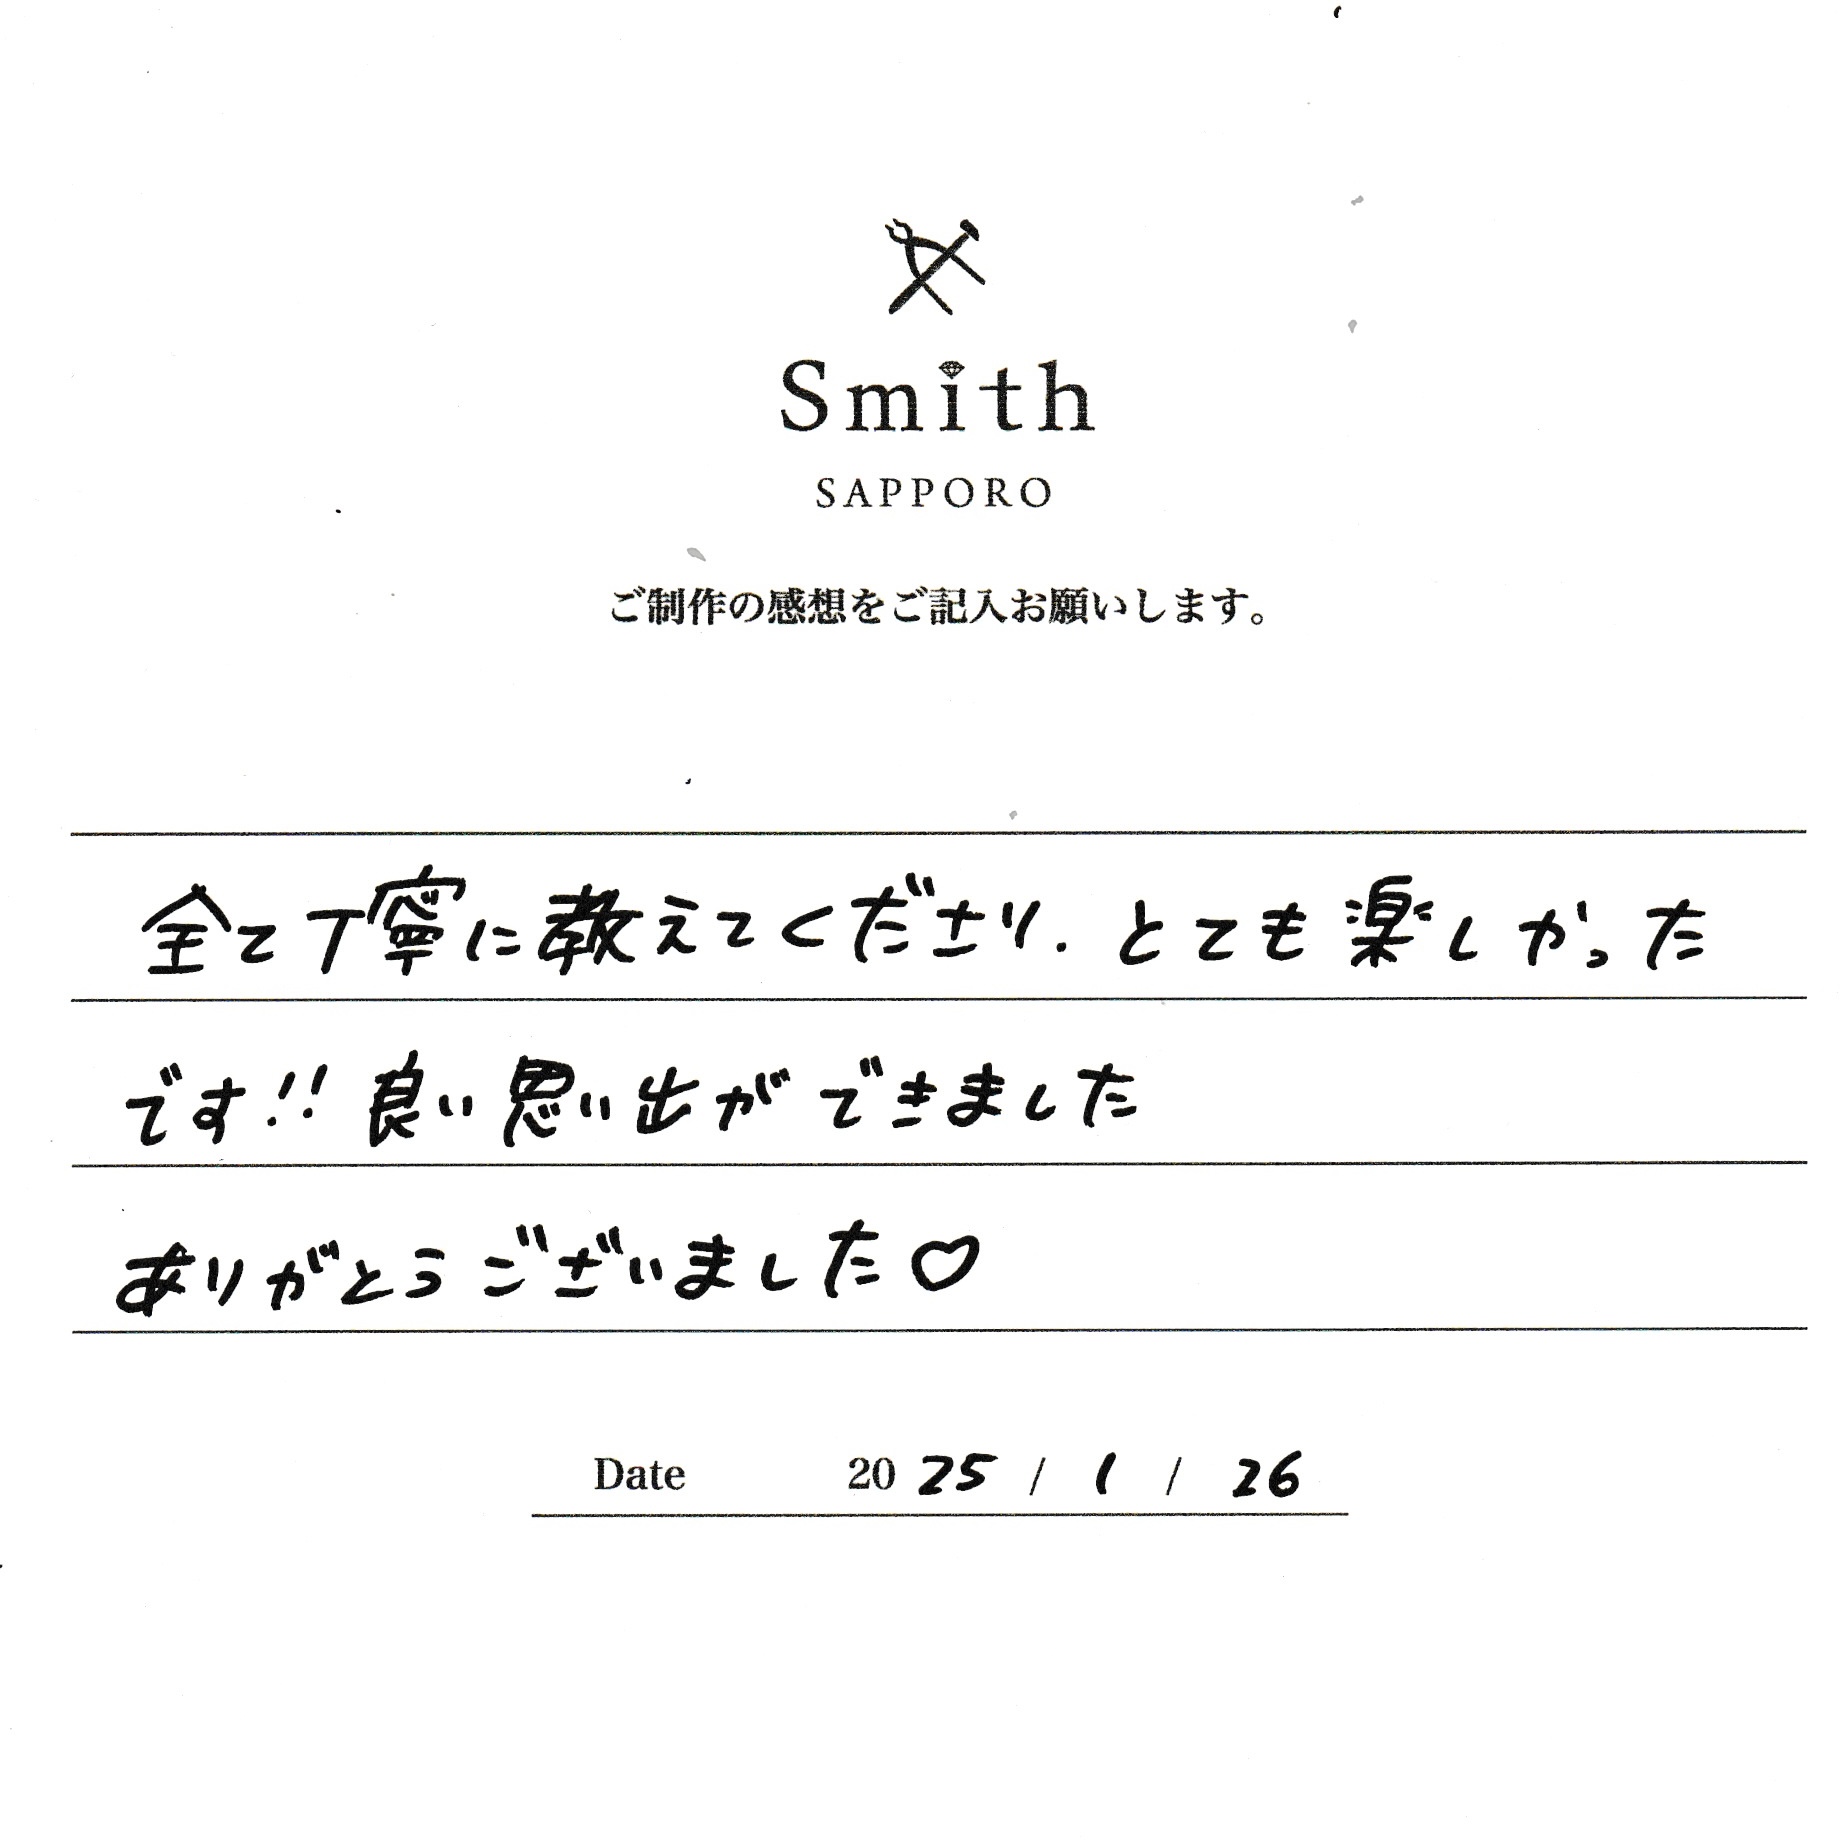 Smith
SAPPORO
ご制作の感想をご記入お願いします。
全て丁寧に教えてくださり、とても楽しかった
です!! 良い思い出ができました
ありがとうございました♡
Date 2025 / 1 / 26